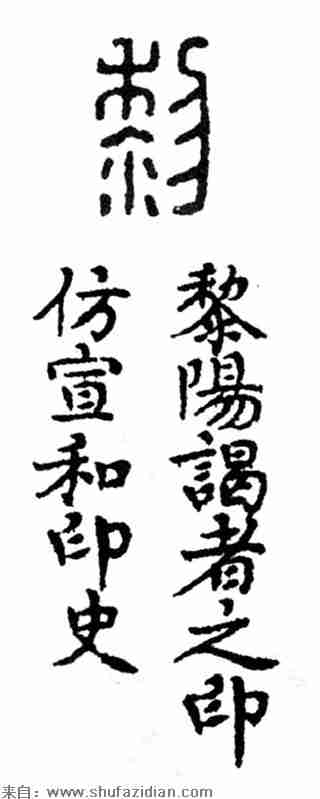 黎
黎陽謁者之印
仿宣和印史
来自：www.shufazidian.com